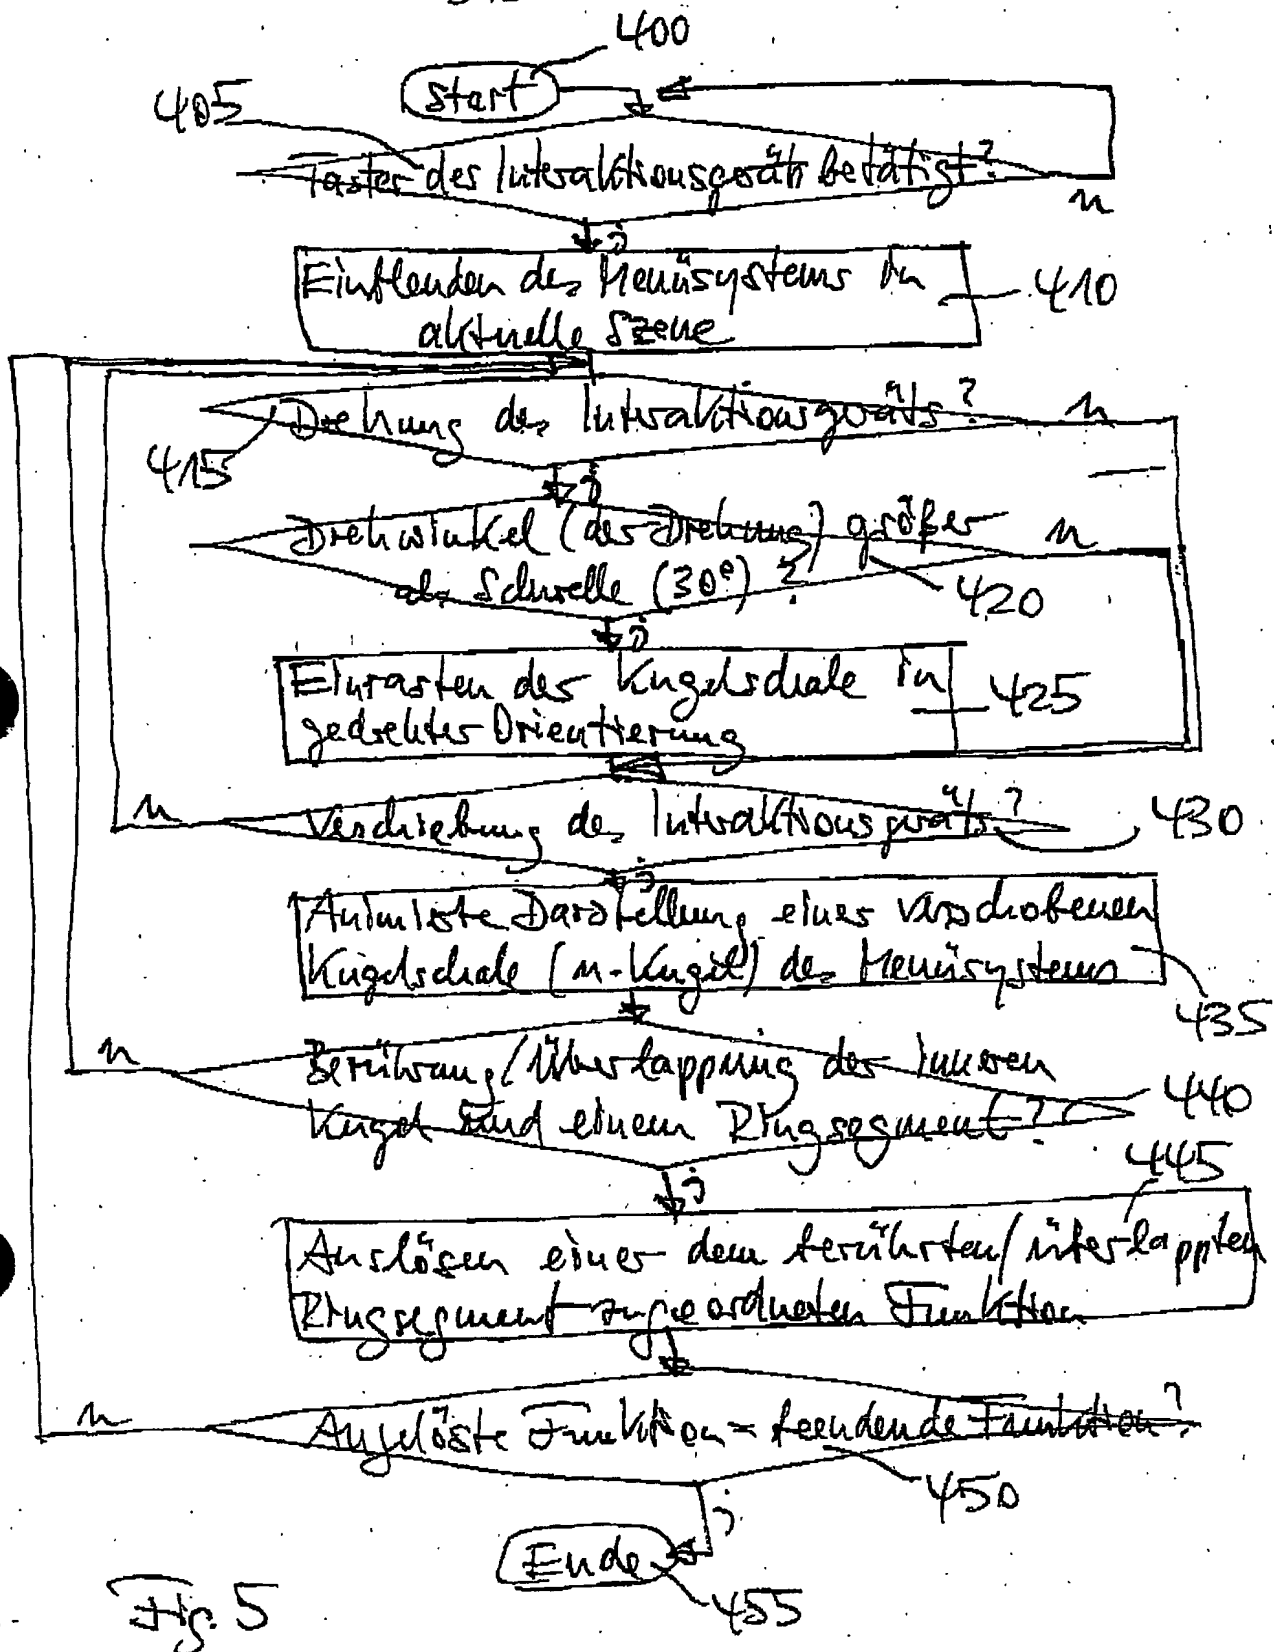 400
Start
405
Taster des Interaktionsgeräts betätigt?
n
j
Einblenden des Menüsystems in
aktuelle Szene
410
Drehung des Interaktionsgeräts?
n
415
j
Drehwinkel (der Drehung) größer
als Schwelle (30°)?
n
420
j
Einrasten der Kugelschale in
gedrehter Orientierung
425
n
Verschiebung des Interaktionsgeräts?
430
j
Animierte Darstellung einer verschobenen
Kugelschale (m-Kugel) des Menüsystems
435
n
Berührung/Überlappung der inneren
Kugel und einem Ringsegment?
440
445
j
Auslösen einer dem berührten/überlappten
Ringsegment zugeordneten Funktion
n
Ausgelöste Funktion = beendende Funktion?
450
j
Ende
455
Fig. 5